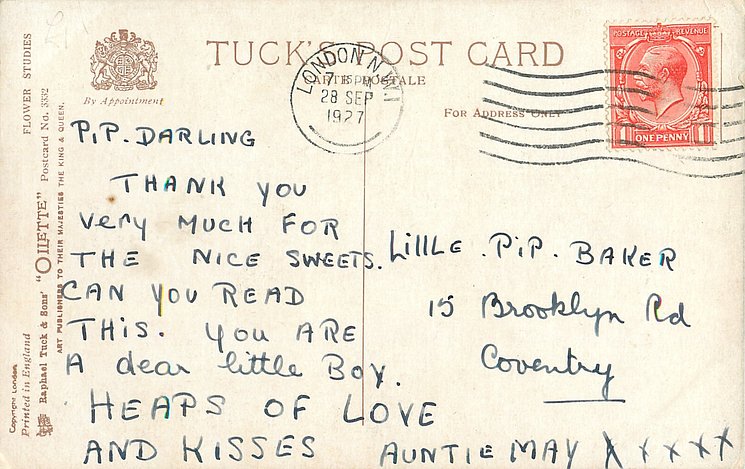 TUCK'S POST CARD
CARTE POSTALE
By Appointment
FOR ADDRESS ONLY
LONDON N.W.1
28 SEP
1927
POSTAGE REVENUE
1 ONE PENNY 1
FLOWER STUDIES
Raphael Tuck & Sons' "OILETTE" Postcard No. 3352
ART PUBLISHERS TO THEIR MAJESTIES THE KING & QUEEN.
Copyright London
Printed in England
P.P. DARLING
THANK YOU
Very MUCH FOR
THE NICE SWEETS.
CAN YOU READ
THIS. YOU ARE
A dear little BOY.
HEAPS OF LOVE
AND KISSES AUNTIE MAY X X X X X
LillLE . PiP. BAKER
15 Brooklyn Rd
Coventry